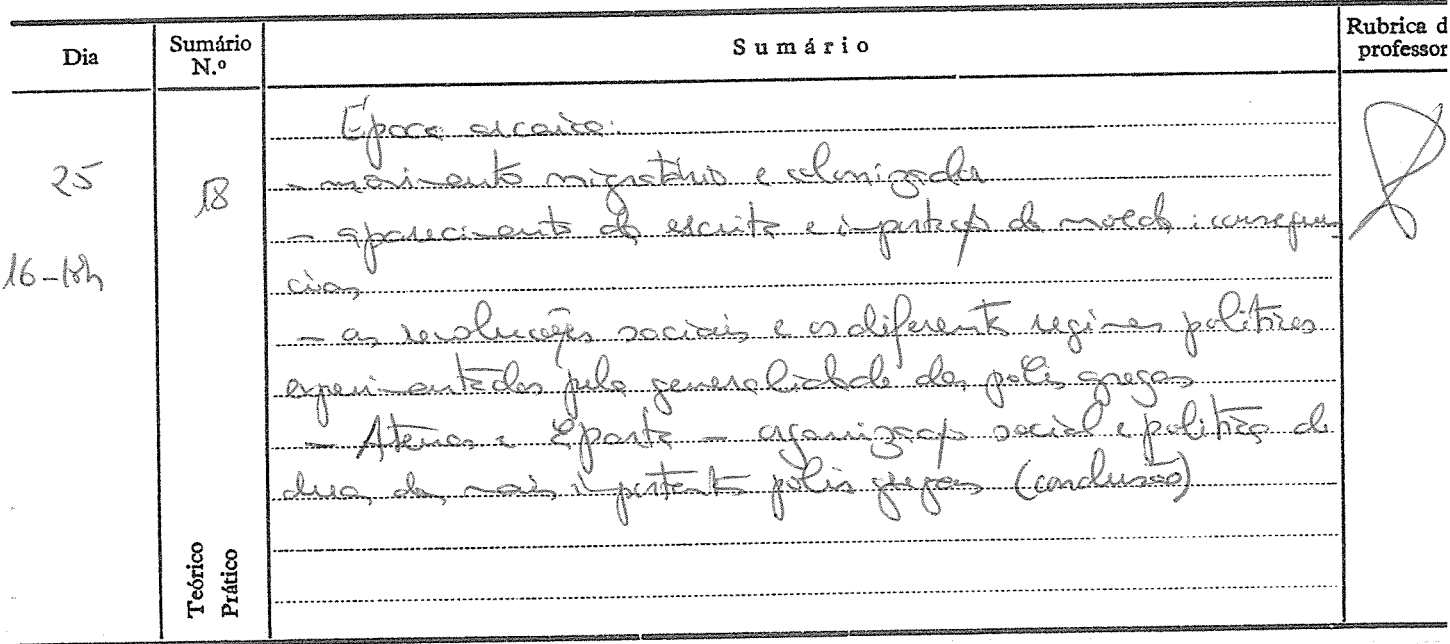 Dia
Sumário N.º
Sumário
Rubrica d
professor
25
16-18h
18
Época arcaica:
- movimento migratório e colonizador
- aparecimento da escrita e importação da moeda: consequên
cias
- as revoluções sociais e os diferentes regimes políticos
experimentados pela generalidade das polis gregas
- Atenas e Esparta - organização social e política de
duas das mais importantes polis gregas (conclusão)
Teórico
Prático